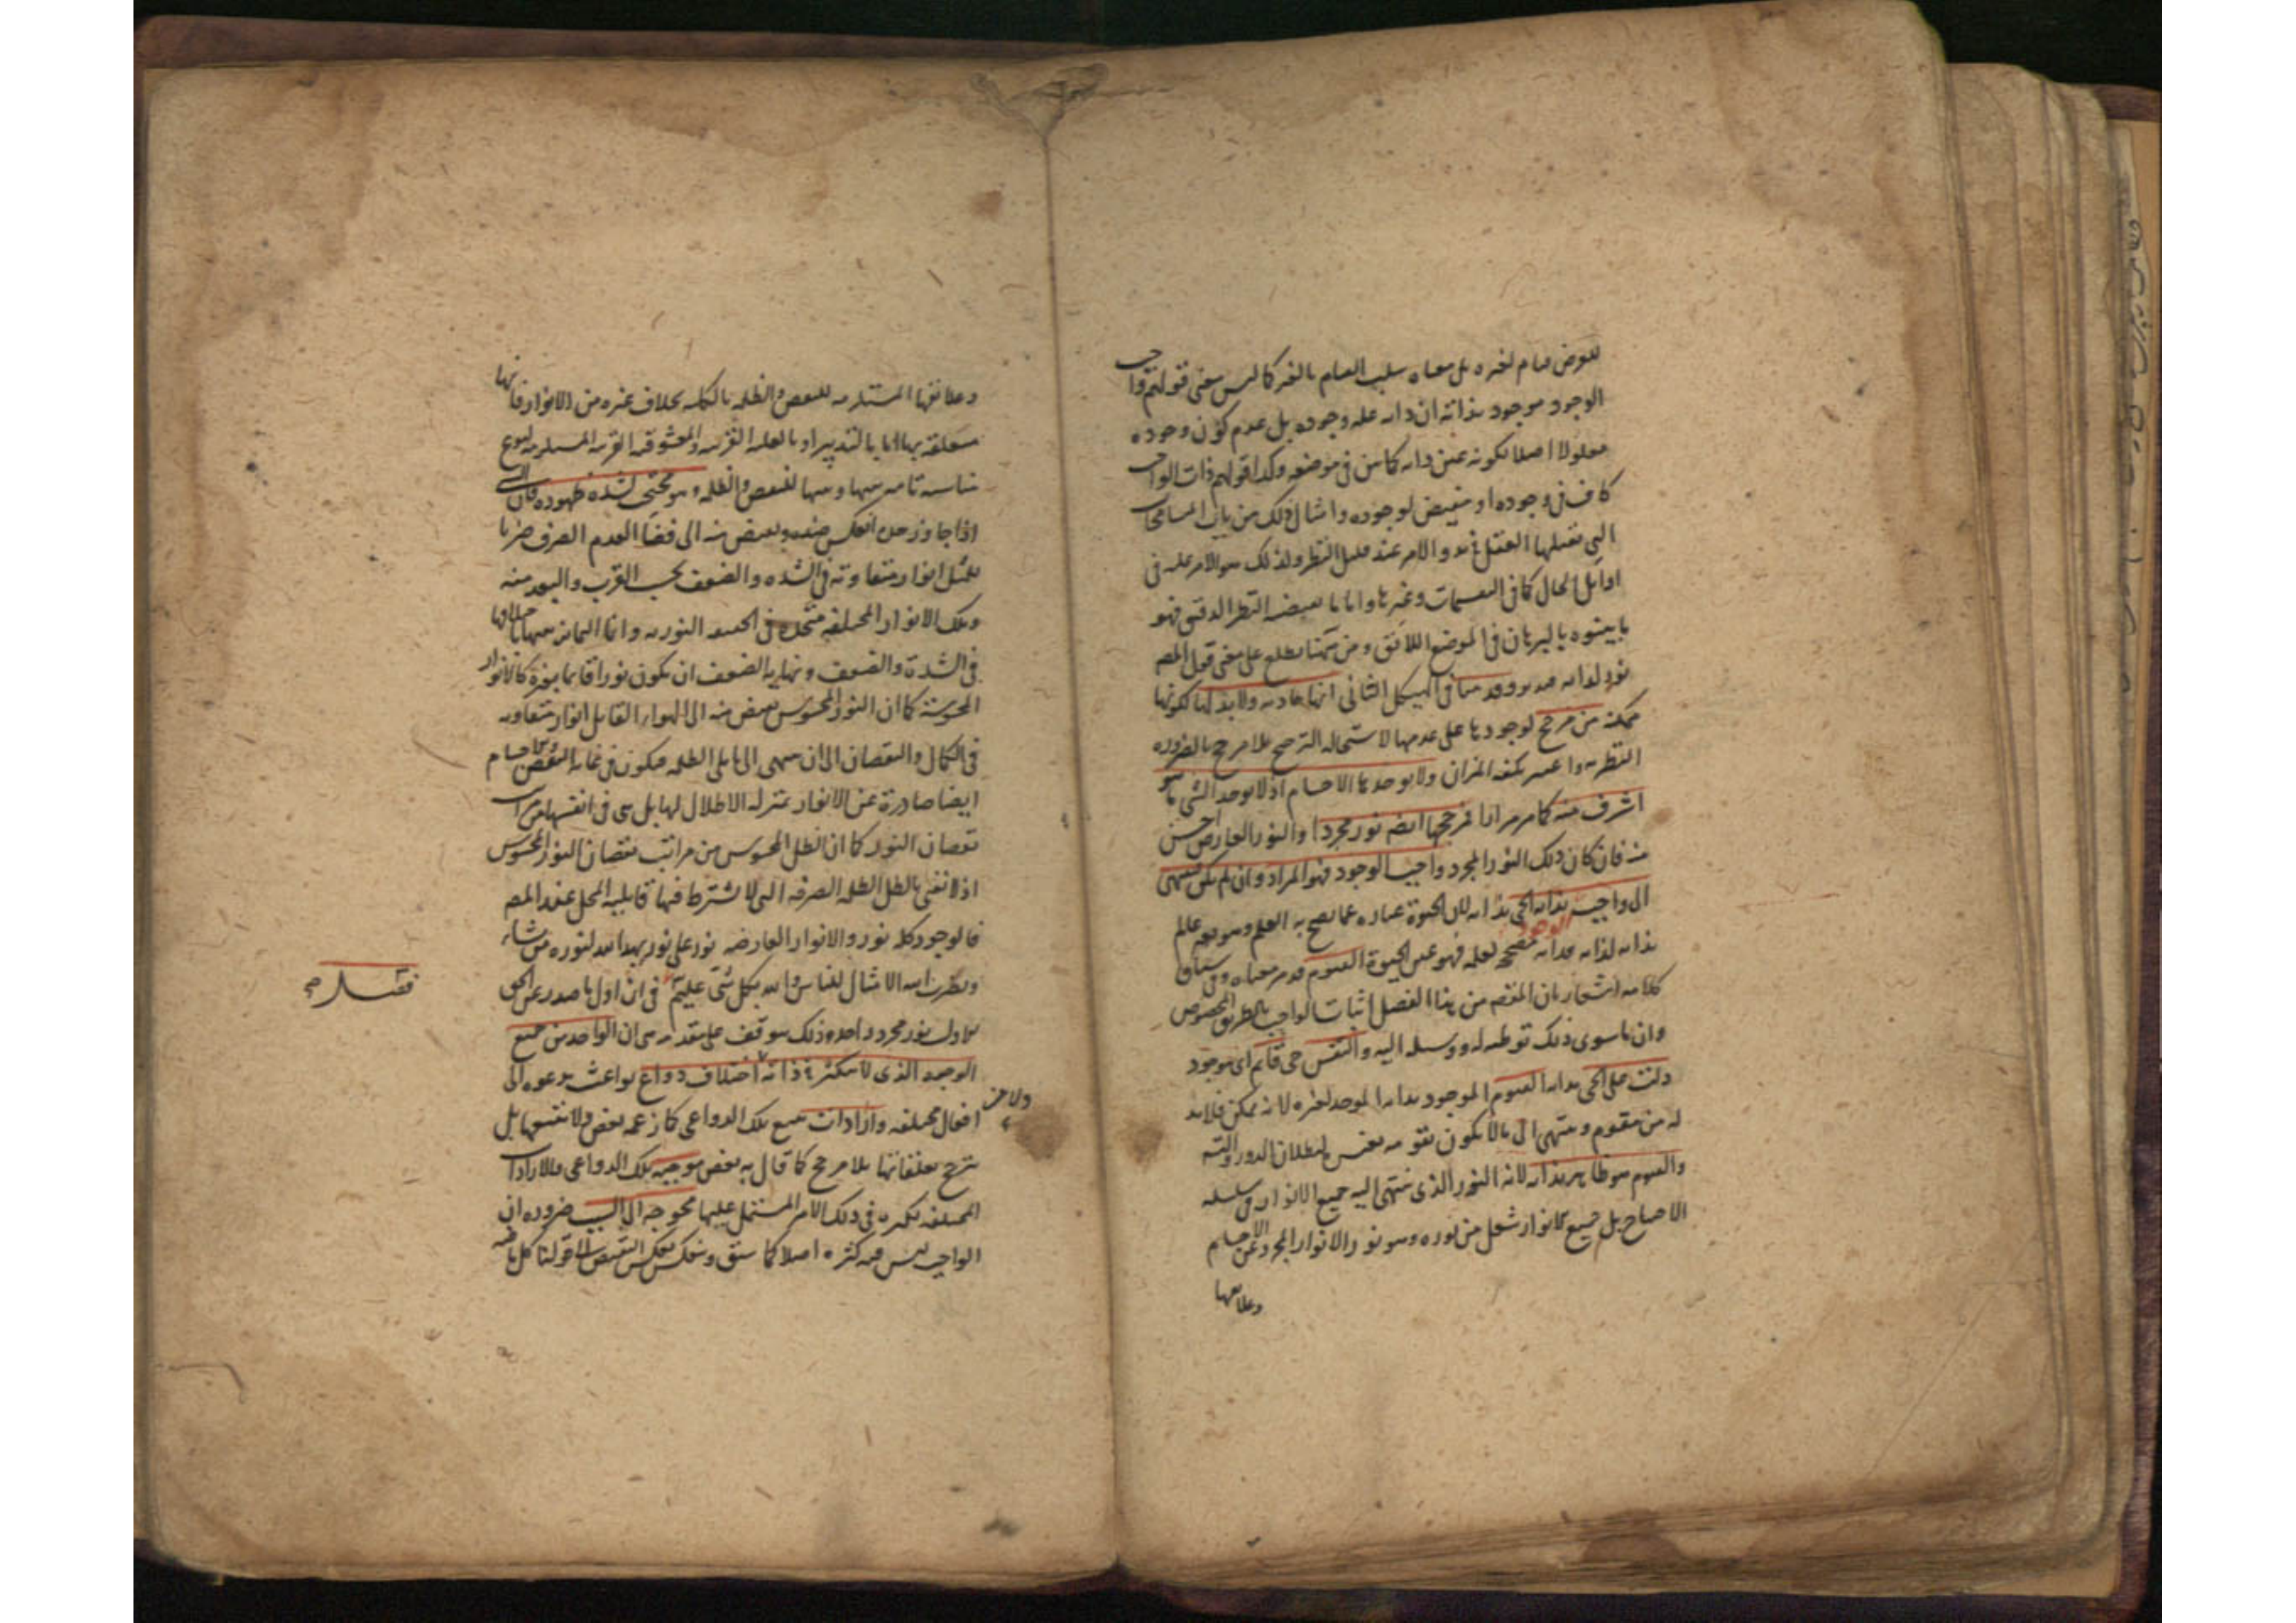 للعرض قيام لغيره بل معناه سلب القيام بالغير كما ليس معنى قولهم واجب
الوجود موجود بذاته ان ذاته علة وجوده بل عدم كون وجوده
معلولا اصلا لكونه عين ذاته كما بين في موضعه وكذا قولهم ذات الواجب
كاف في وجوده او مقيض لوجوده وامثال ذلك من باب المسامحات
التي تقبلها العقل والامر عند قليل النظر ولذلك هو الامر عليه في
اوايل الحال كما في التقسيمات وغيرها واما ما يقتضيه النظر الدقيق فهو
ما بينوه بالبرهان في الموضع اللائق ومن هنا يطلع على معنى قول المص
نور لذاته وقد بينا في الهيكل الثاني انها حادثه ولا بد لها لكونها
ممكنه من مرجح لوجودها على عدمها لاستحاله الترجح بلا مرجح بالضروره
النظر ولا يوجدها الاجسام اذ لا يوجد الشي ما هو
اشرف منه كما مر مرارا فمرجحها ايضا نور مجرد والنور العارض اخس
منه فان كان ذلك النور المجرد واجب الوجود فهو المراد وان لم يكن فينتهى
الى واجب الوجود بذاته الحي بذاته لان الحيوة عباره عما يصح به العلم وهو عالم
بذاته لذاته فذاته مصحح لعلمه فهو عين الحيوة القيوم قد مر معناه وفي سياق
كلامه اشعار بان المقصد من هذا الفصل اثبات الواجب بالطريق المخصوص
وان ما سوى ذلك توطئه له ووسيله اليه والنفس حي قائم اى موجود
دلت على الحي بذاته القيوم الموجود بذاته الموجد لغيره لانه ممكن فلا بد
له من مقوم وينتهى الى ما لا يكون تقومه بغيره لبطلان الدور والتسلسل
والقيوم هو ظاهر بذاته لانه النور الذى ينتهى اليه جميع الانوار في سلسله
الاحتياج بل جميع الانوار شعل من نوره وهو نور الانوار المجرد عن الاجسام
وعلائقها
وعلائقها المستلزمه للنقص والظلمه بالكليه بخلاف غيره من الانوار فانها
متعلقه بها اما بالتدبير او بالعليه القريبه والمعشوقيه القريبه المستلزمه لنوع
مناسبه تامه بينها وبينها للنقص والظلمه وهو مختفي لشده ظهوره فان الشي
اذا جاوز حده انعكس ضده ويفيض منه الى فضا العدم الصرف ضربا
للمثل انوار متفاوته في الشده والضعف بحسب القرب والبعد منه
وتلك الانوار المختلفه متحده في الحقيقه النوريه وانما التمايز بينها باختلافها
في الشدة والضعف ونهايه الضعف ان يكون نورا قائما بغيره كالانوار
المحسوسة كما ان النور المحسوس يفيض منه الى الهواء القابل انوار متفاوته
في الكمال والنقصان الى ان ينتهى الى ما يلى الظلمه فيكون في غاية النقص والاجسام
ايضا صادرة عن الانوار بمنزله الاظلال لها بل هى في انفسها مراتب
نقصان النور كما ان الظل المحسوس من مراتب نقصان النور المحسوس
اذ لا نعنى بالظل الظلمه الصرفه التى لا يشترط فيها قابليه المحل عند المص
فالوجود كله نور والانوار العارضه نور على نور يهدى الله لنوره من يشاء
ويضرب الله الامثال للناس والله بكل شى عليم في ان اول ما صدر عن الحق
الاول نور مجرد واحد وذلك يتوقف على مقدمه هى ان الواحد من جميع
الوجوه الذى لا تكثر في ذاته اختلاف دواع بواعث يدعوه الى
افعال مختلفه وارادات تتبع تلك الدواعى كما زعمه بعض ولا تتبعها بل
ترجح متعلقاتها بلا مرجح كما قال به بعض موجبه تلك الدواعى والارادات
المختلفه تكثره في ذلك الامر المشتمل عليها محوجه الى السبب ضروره ان
الواجب ليس فيه كثره اصلا كما سبق وينعكس بعكس النقيض الى قولنا كل ما فيه
فصل